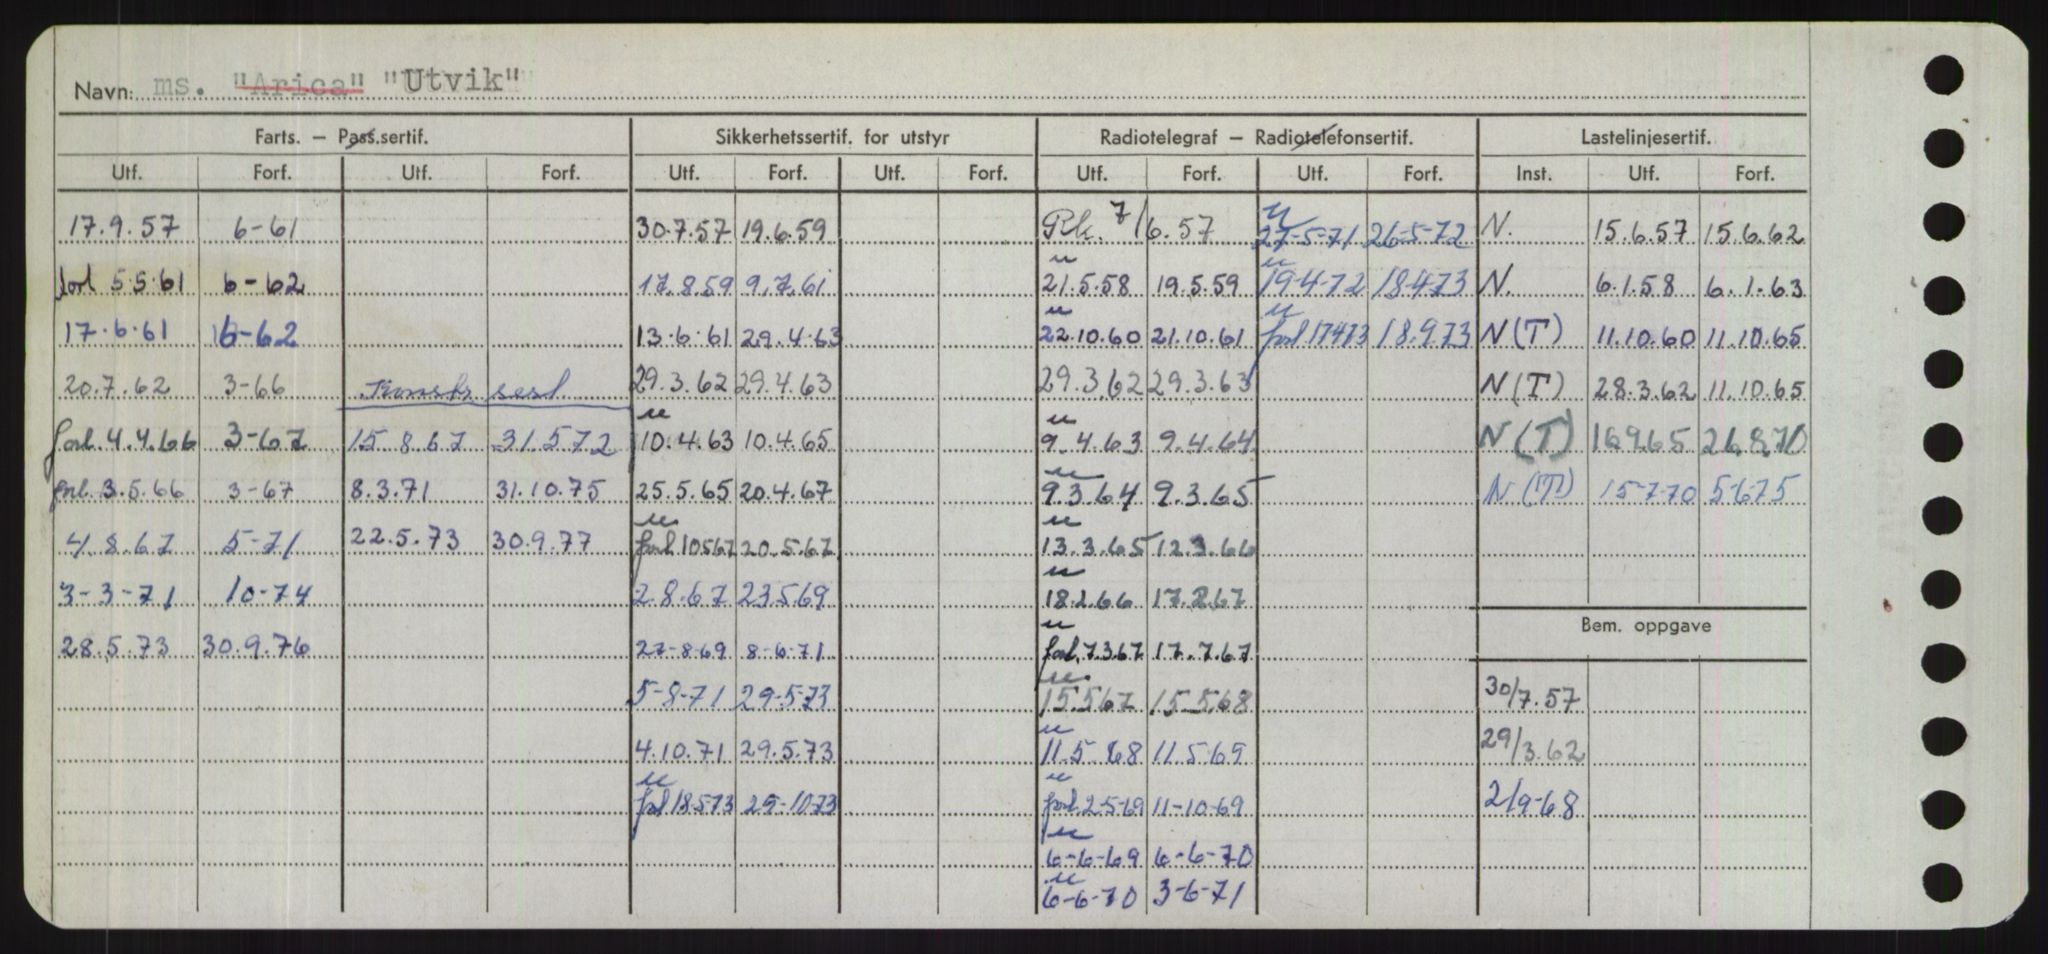 Navn: ms. "Arica" "Utvik"
Farts. — Pass.sertif. Sikkerhetssertif. for utstyr Radiotelegraf — Radiotelefonsertif. Lastelinjesertif.
Utf. Forf. Utf. Forf. Utf. Forf. Utf. Forf. Utf. Forf. Utf. Forf. Inst. Utf. Forf.
17.9.57 6-61 30.7.57 19.6.59 Rk. 7/6.57 u 27-5-71 26-5-72 N. 15.6.57 15.6.62
forl 5.5.61 6-62 17.8.59 9.7.61 u 21.5.58 19.5.59 u 19-4-72 18-4-73 N. 6.1.58 6.1.63
17.6.61 6-62 13.6.61 29.4.63 u 22.10.60 21.10.61 u forl 17473 18.9.73 N(T) 11.10.60 11.10.65
20.7.62 3-66 Konstr. sert. 29.3.62 29.4.63 29.3.62 29.3.63 N(T) 28.3.62 11.10.65
forl. 4.4.66 3-67 15.8.67 31.5.72 u 10.4.63 10.4.65 u 9.4.63 9.4.64 N(T) 16.9.65 26.8.70
forl. 3.5.66 3-67 8.3.71 31.10.75 25.5.65 20.4.67 u 9.3.64 9.3.65 N(T) 15-7-70 5-6-75
4.8.67 5-71 22.5.73 30.9.77 u forl 10567 20.5.67 u 13.3.65 12.3.66
3-3-71 10-74 2.8.67 23.5.69 u 18.2.66 17.2.67
28.5.73 30.9.76 27-8-69 8-6-71 u forl. 7.3.67 17.7.67
Bem. oppgave
5-8-71 29-5-73 u 15.5.67 15.5.68 30/7.57
4.10.71 29.5.73 u 11.5.68 11.5.69 29/3.62
u forl 18573 29-10-73 u forl. 2-5-69 11-10-69 2/9-68
u 6-6-69 6-6-70
u 6-6-70 3-6-71